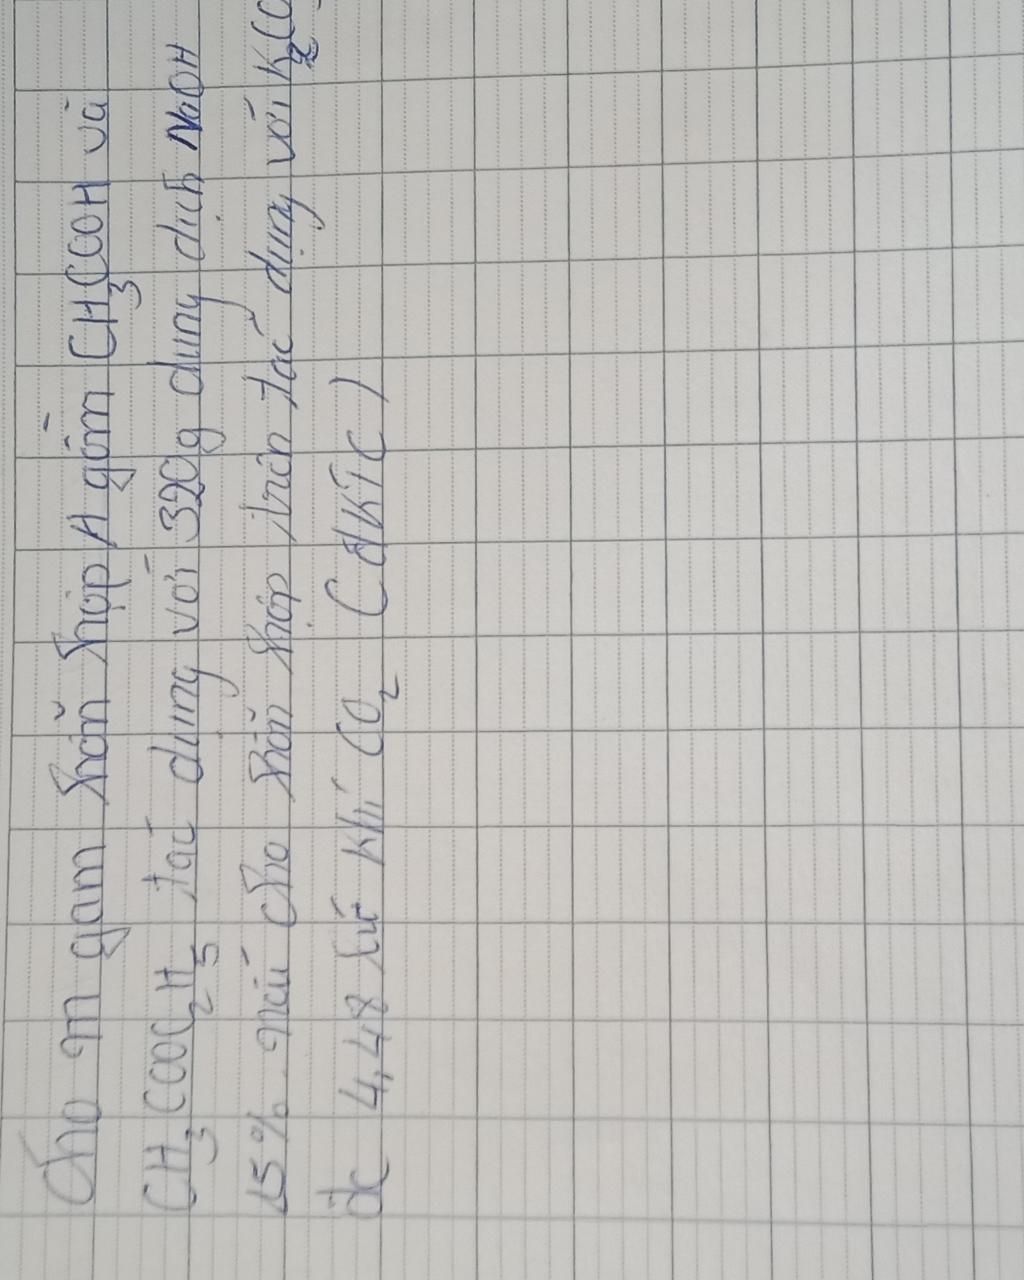 Cho m gam hỗn hợp A gồm CH₃COOH và
CH₃COOC₂H₅ tác dụng với 320g dung dịch NaOH
15%. nếu cho hỗn hợp trên tác dụng với K₂CO
đc 4,48 lít khí CO₂ (đKTC)